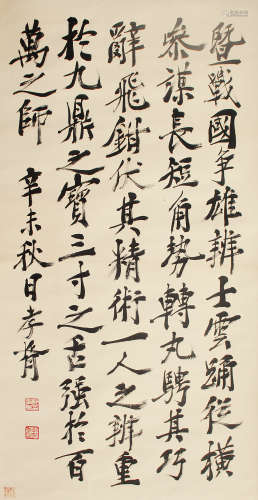 暨戰國爭雄辨士雲踊從橫
參謀長短角勢轉丸騁其巧
辭飛鉗伏其精術一人之辨重
於九鼎之寶三寸之舌强於百
萬之師 辛未秋日孝胥